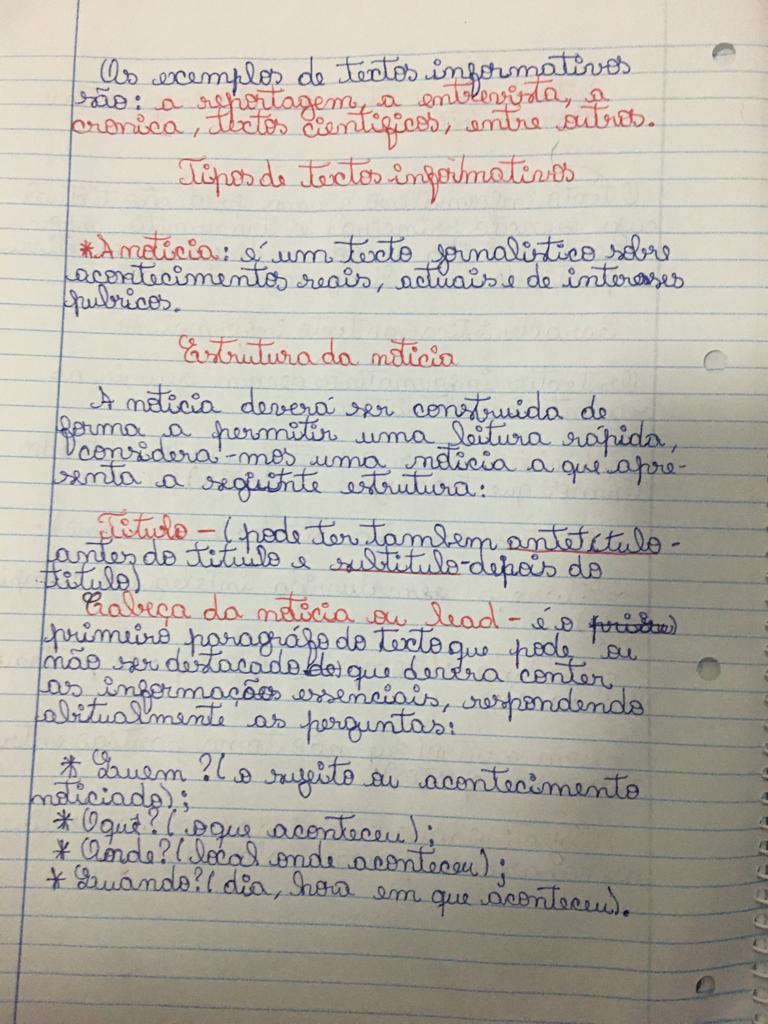 Os exemplos de textos informativos
são: a reportagem, a entrevista, a
cronica, textos cientificos, entre outros.
Tipos de textos informativos
*A noticia: é um texto jornalistico sobre
acontecimentos reais, actuais e de interesses
pubricos.
Estrutura da noticia
A noticia deverá ser construida de
forma a permitir uma leitura rápida,
considera-mos uma noticia a que apre-
senta a seguinte estrutura:
Titulo - (pode ter tambem antetitulo-
antes do titulo e subtitulo-depois do
titulo)
Cabeça da noticia ou lead - é o
primeiro paragráfo do texto que pode ou
não ser destacado que devera conter
as informações essenciais, respondendo
abitualmente as perguntas:
* Quem ? (o sujeito ou acontecimento
noticiado);
* Oquê? (oque aconteceu);
* Aonde? (local onde aconteceu);
* Quando? (dia, hora em que aconteceu).